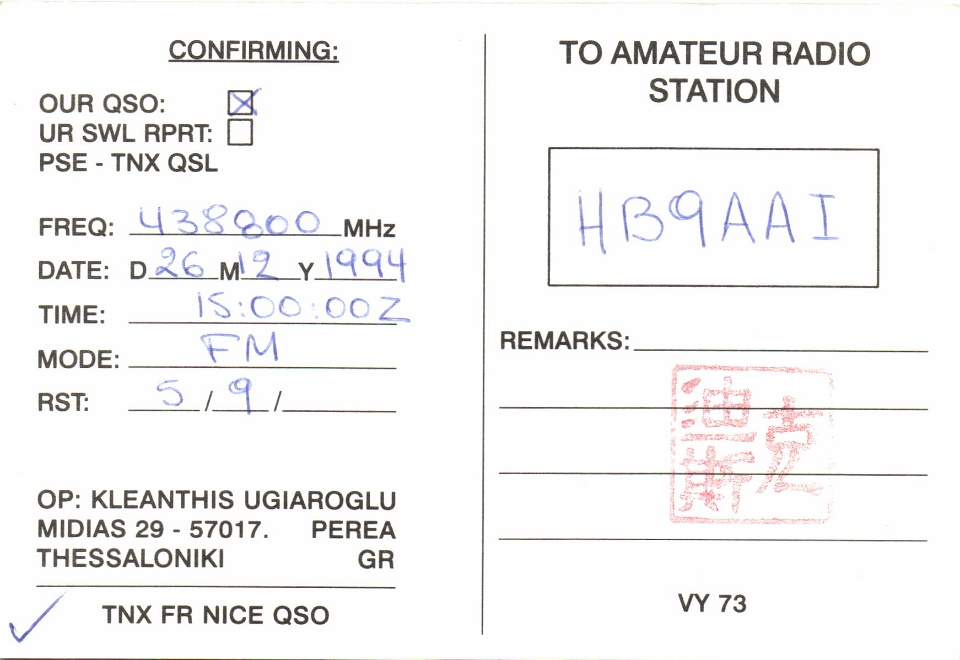 CONFIRMING:
OUR QSO: ☒
UR SWL RPRT: ☐
PSE - TNX QSL
FREQ: 438800 MHz
DATE: D 26 M 12 Y 1994
TIME: 15:00:00Z
MODE: FM
RST: 5 / 9 /
OP: KLEANTHIS UGIAROGLU
MIDIAS 29 - 57017. PEREA
THESSALONIKI GR
TNX FR NICE QSO
TO AMATEUR RADIO
STATION
HB9AAI
REMARKS:
克
迪斯
VY 73